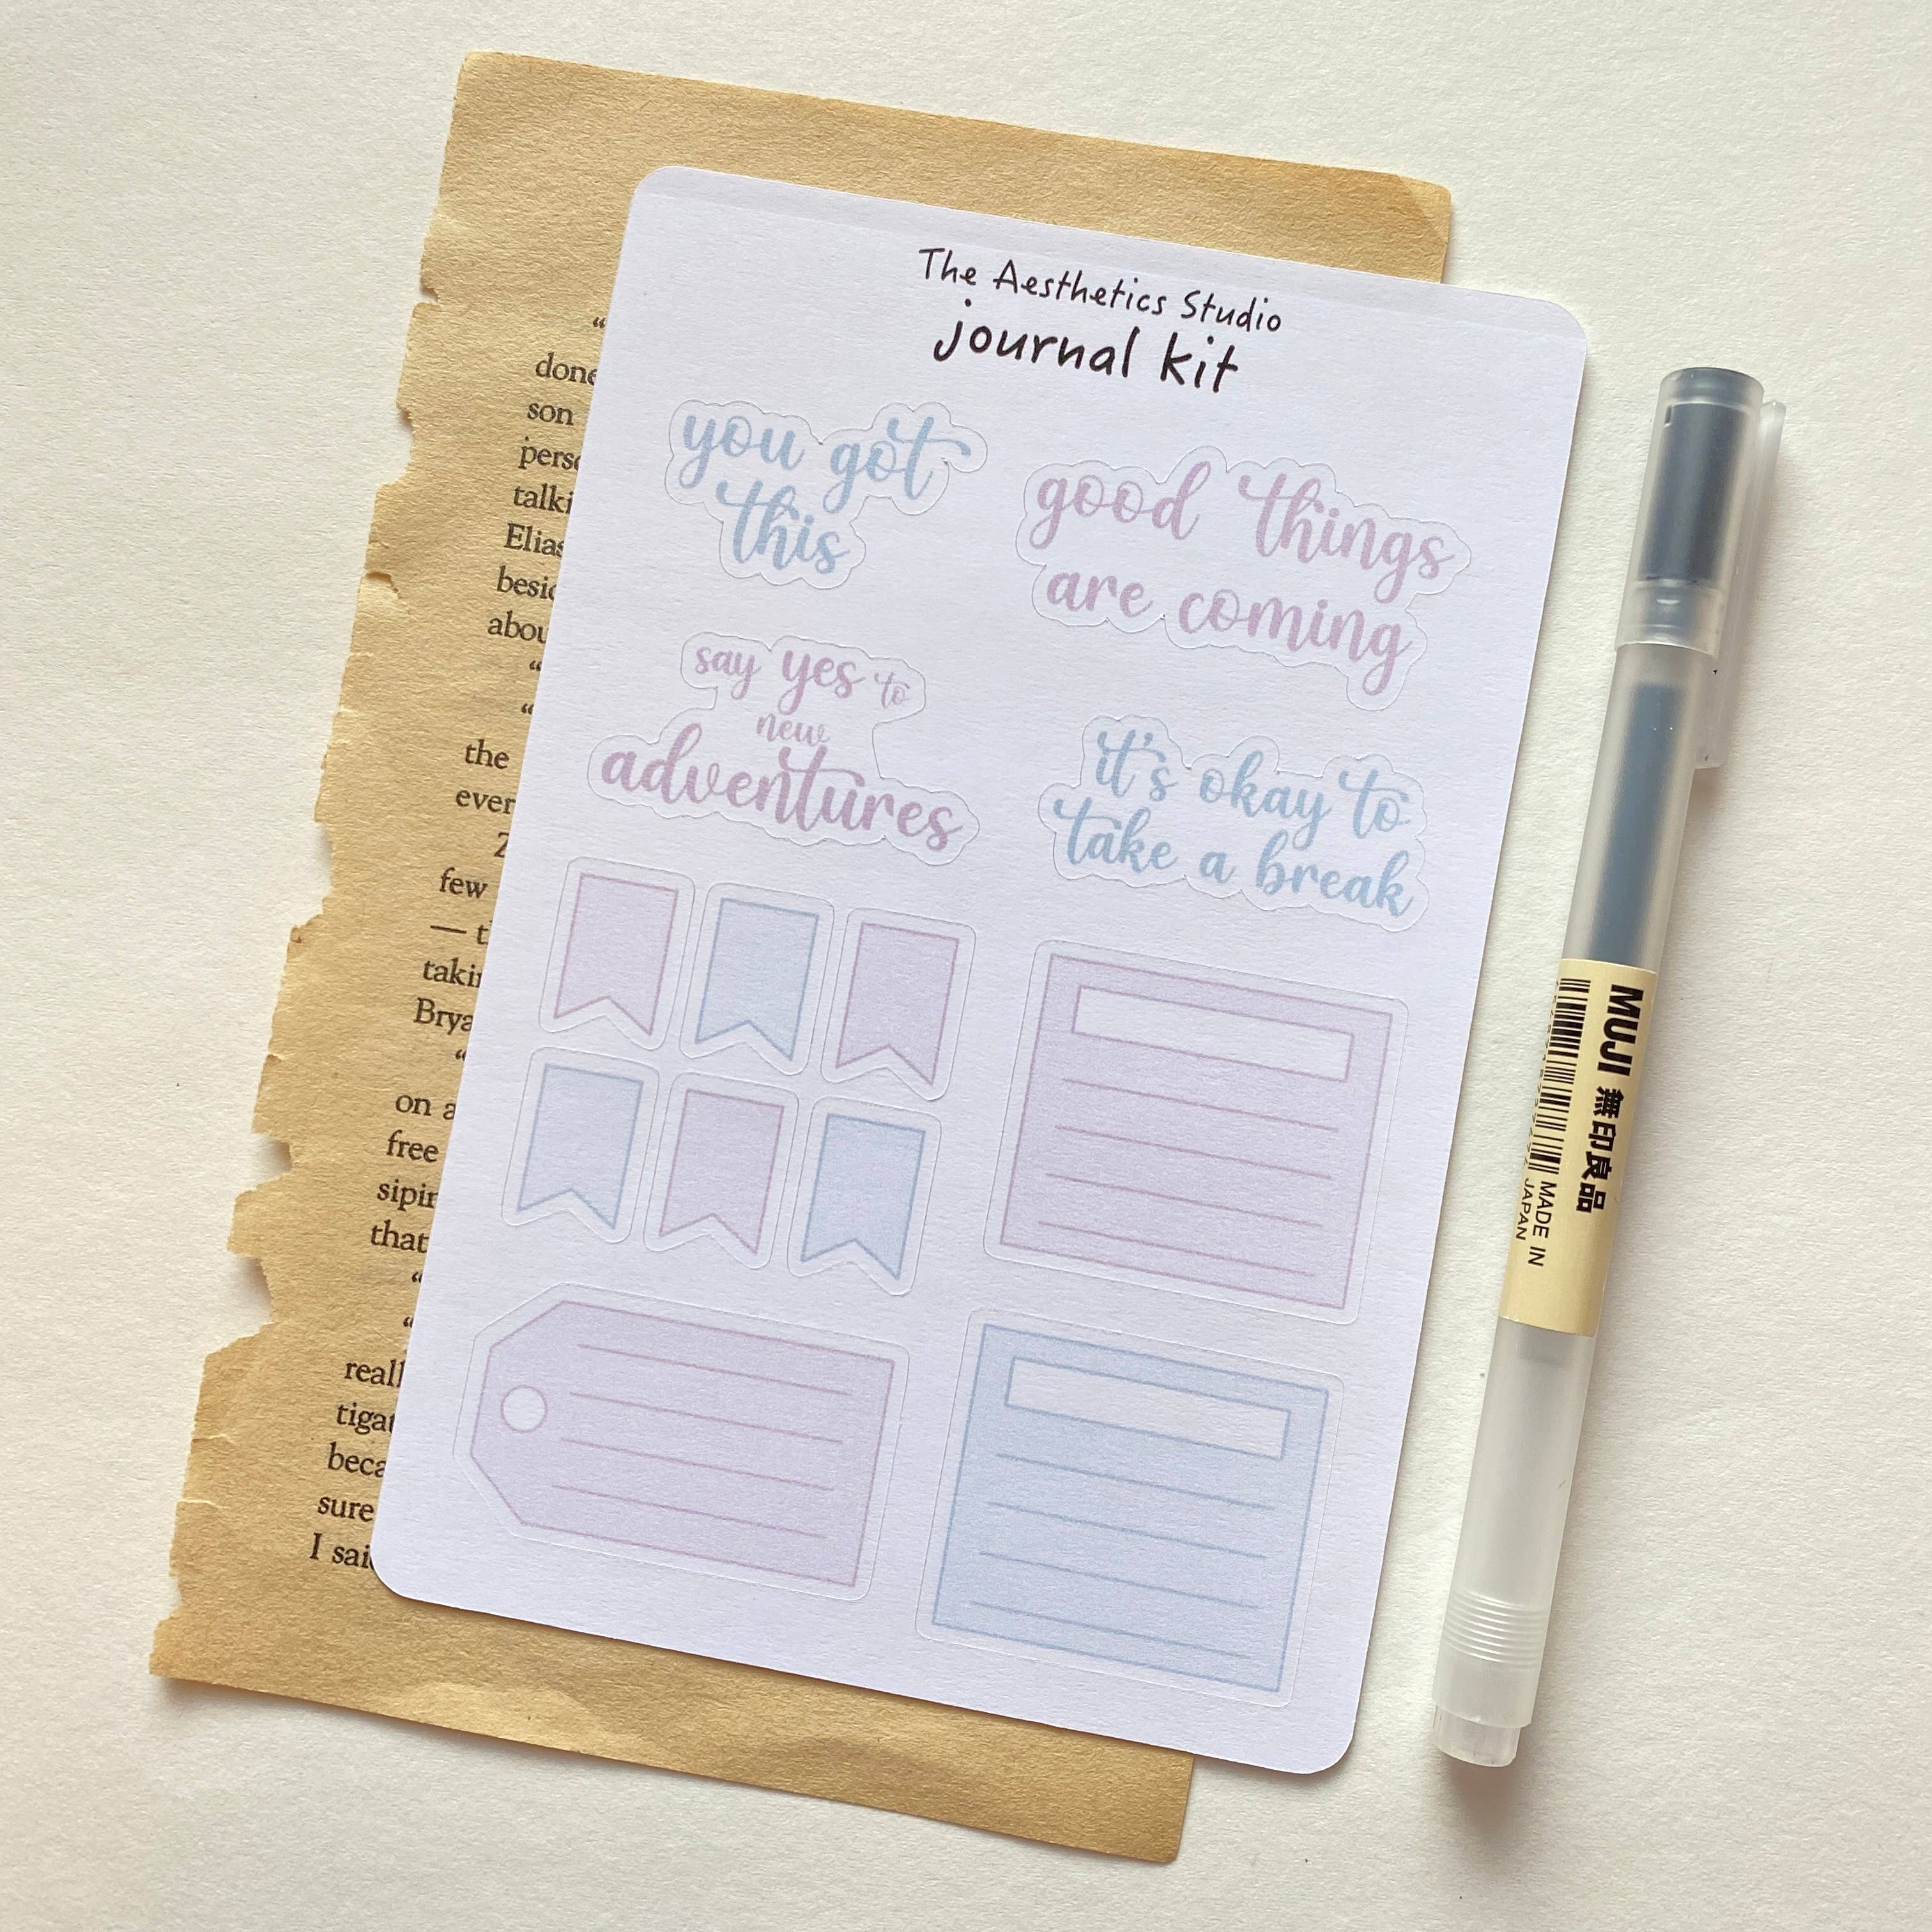 The Aesthetics Studio
journal kit
you got
this
good things
are coming
say yes to
new
adventures
it's okay to
take a break
“
done
son
talki
Elias
besid
abou
“
“
the
ever
2
few
— t
takin
Brya
“
on a
free
sipin
that
“
“
reall
tigat
beca
sure
I said
MUJI 無印良品
MADE IN
JAPAN